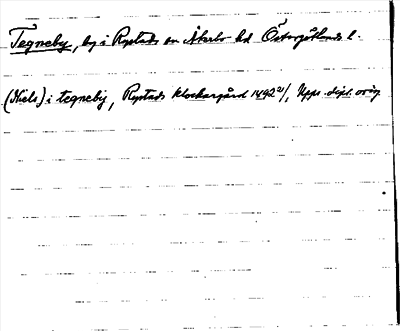 Tegneby, by i Rystads sn Åkerbo hd Östergötlands l.
(Niels) i tegneby, Rystads klockargård 1492 2/1, Upps. dipl. orig.